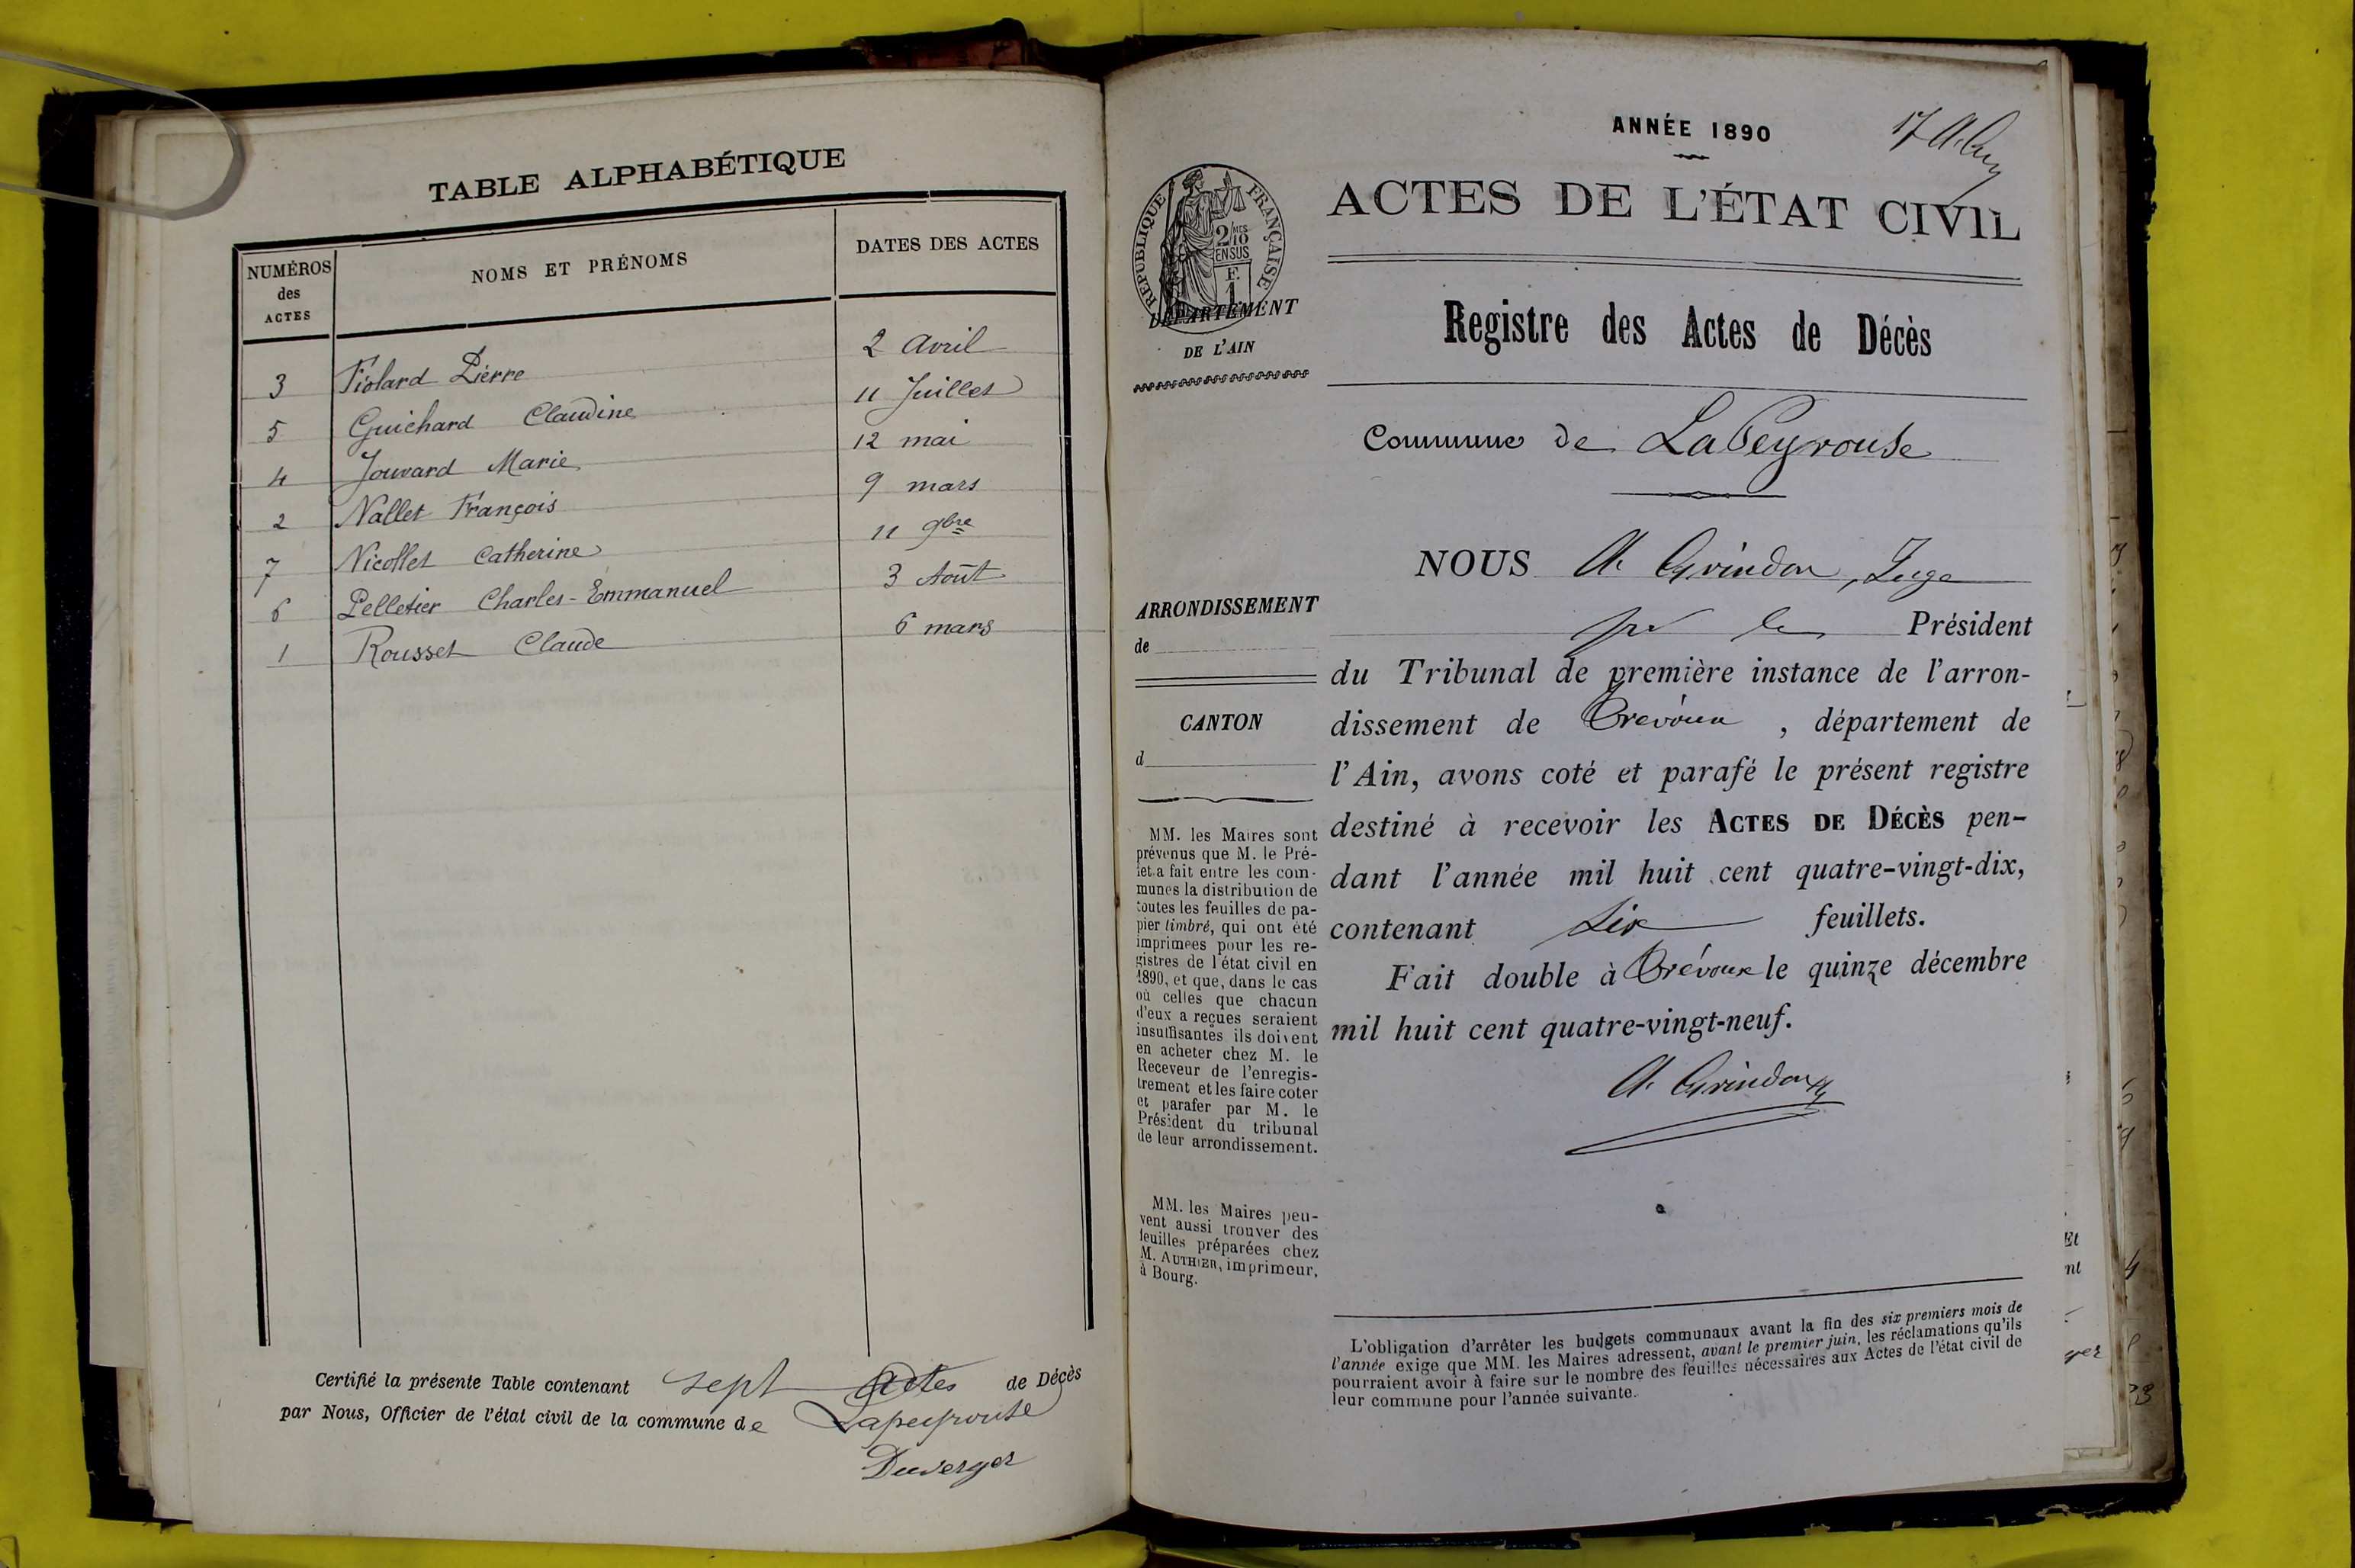 TABLE ALPHABÉTIQUE
NUMÉROS des ACTES
NOMS ET PRÉNOMS
DATES DES ACTES
3 Fiolard Pierre 2 Avril
5 Guichard Claudine 11 Juillet
4 Jouvard Marie 12 mai
2 Nallet François 9 mars
7 Nicollet Catherine 11 9bre
6 Pelletier Charles-Emmanuel 3 Août
1 Rousset Claude 6 mars
Certifié la présente Table contenant sept Actes de Décès
par Nous, Officier de l'état civil de la commune de Lapeyrouse
Duverger
ANNÉE 1890
ACTES DE L'ÉTAT CIVIL
RÉPUBLIQUE FRANÇAISE
2/10MES
EN SUS
F.
1
DÉPARTEMENT
DE L'AIN
Registre des Actes de Décès
Commune de LaPeyrouse
ARRONDISSEMENT
de
CANTON
d
MM. les Maires sont
prévenus que M. le Pré-
fet a fait entre les com-
munes la distribution de
toutes les feuilles de pa-
pier timbré, qui ont été
imprimées pour les re-
gistres de l'état civil en
1890, et que, dans le cas
où celles que chacun
d'eux a reçues seraient
insuffisantes ils doivent
en acheter chez M. le
Receveur de l'enregis-
trement et les faire coter
et parafer par M. le
Président du tribunal
de leur arrondissement.
MM. les Maires peu-
vent aussi trouver des
feuilles préparées chez
M. AUTHIER, imprimeur,
à Bourg.
NOUS A. Grindon, Juge
pr le Président
du Tribunal de première instance de l'arron-
dissement de Trévoux , département de
l'Ain, avons coté et parafé le présent registre
destiné à recevoir les ACTES DE DÉCÈS pen-
dant l'année mil huit cent quatre-vingt-dix,
contenant six feuillets.
Fait double à Trévoux le quinze décembre
mil huit cent quatre-vingt-neuf.
A. Grindon
L'obligation d'arrêter les budgets communaux avant la fin des six premiers mois de
l'année exige que MM. les Maires adressent, avant le premier juin, les réclamations qu'ils
pourraient avoir à faire sur le nombre des feuilles nécessaires aux Actes de l'état civil de
leur commune pour l'année suivante.